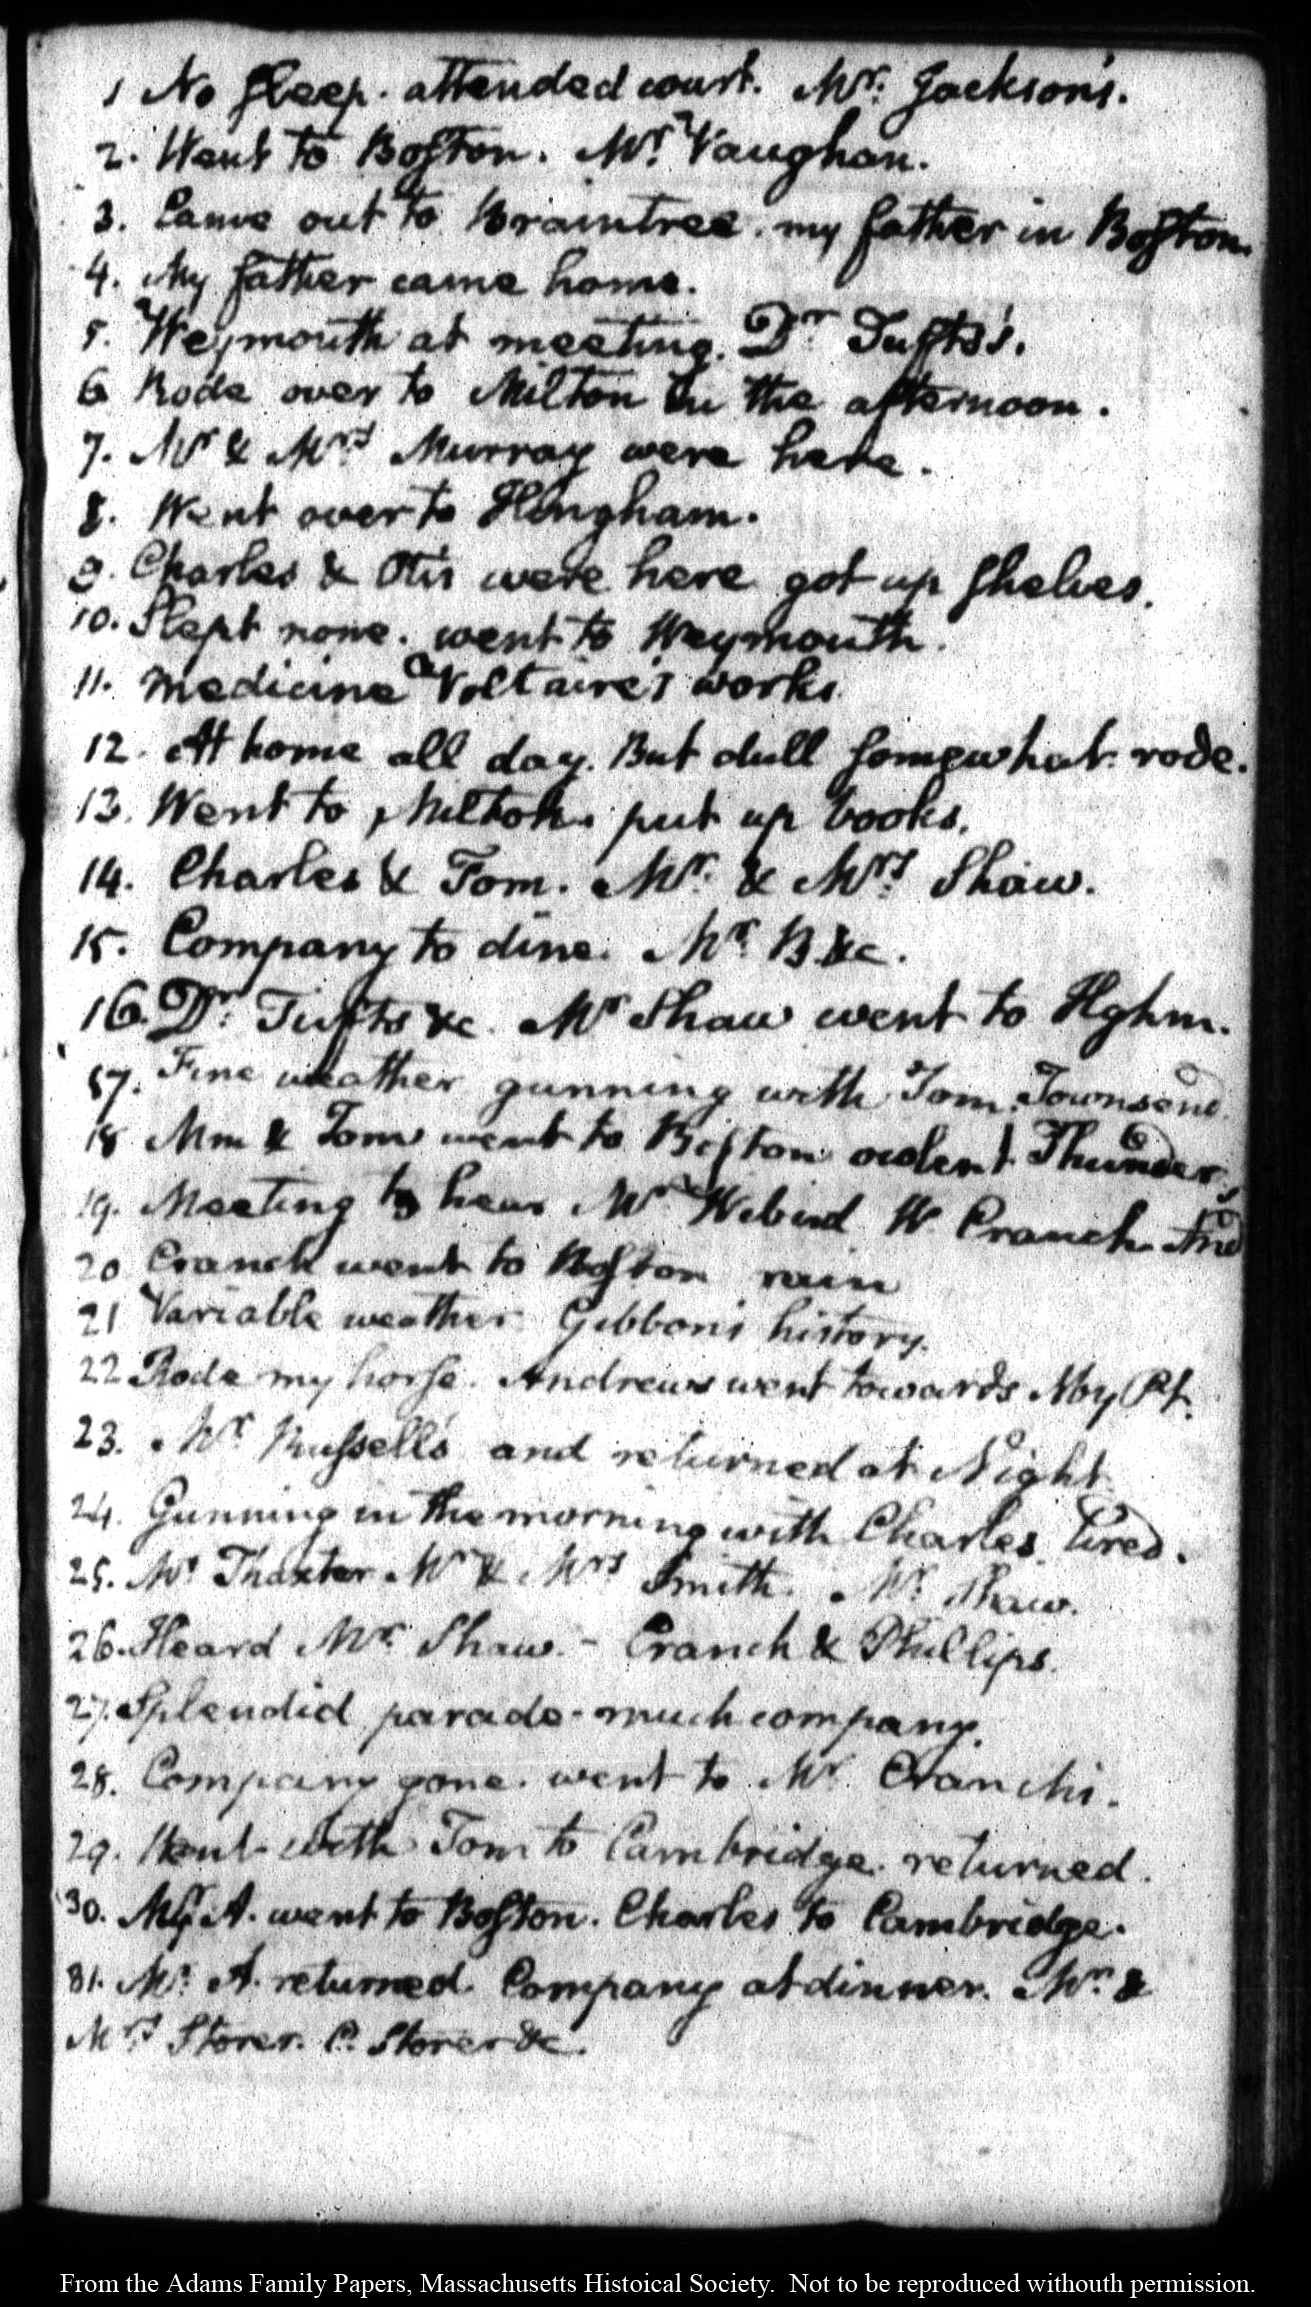 1 No sleep. attended court. Mr. Jackson's.
2. Went to Boston. Mr. Vaughan.
3. Came out to Braintree. my father in Boston.
4. My father came home.
5. Weymouth at meeting. Dr Tufts's.
6 Rode over to Milton in the afternoon.
7. Mr & Mrs Murray were here.
8. Went over to Hingham.
9. Charles & Otis were here got up shelves.
10. Slept none. went to Weymouth.
11. Medicine Voltaire's works
12. At home all day. But dull somewhat. rode.
13. Went to Milton. put up books.
14. Charles & Tom. Mr. & Mrs Shaw.
15. Company to dine. Mr. B. &c.
16. Dr. Tufts &c. Mr Shaw went to Hghm.
17. Fine weather gunning with Tom. Townsend.
18 Mm & Tom went to Boston violent Thunder.
19. Meeting to hear Mr Wibird W. Cranch. And
20 Cranch went to Boston rain
21 Variable weather Gibbon's history.
22 Rode my horse. Andrews went towards Pt.
23. Mr. Russell's and returned at Night
24. Gunning in the morning with Charles. tired.
25. Mr Thaxter Mr & Mrs Smith. Mr. Shaw.
26. Heard Mr. Shaw. - Cranch & Phillips.
27. Splendid parade - much company.
28. Company gone. went to Mr. Cranch's.
29. Went with Tom to Cambridge. returned.
30. A. went to Boston. Charles to Cambridge.
31. Mr. A. returned. Company at dinner. Mr. &
Mrs Storer. C. Storer &c.
From the Adams Family Papers, Massachusetts Histoical Society. Not to be reproduced withouth permission.